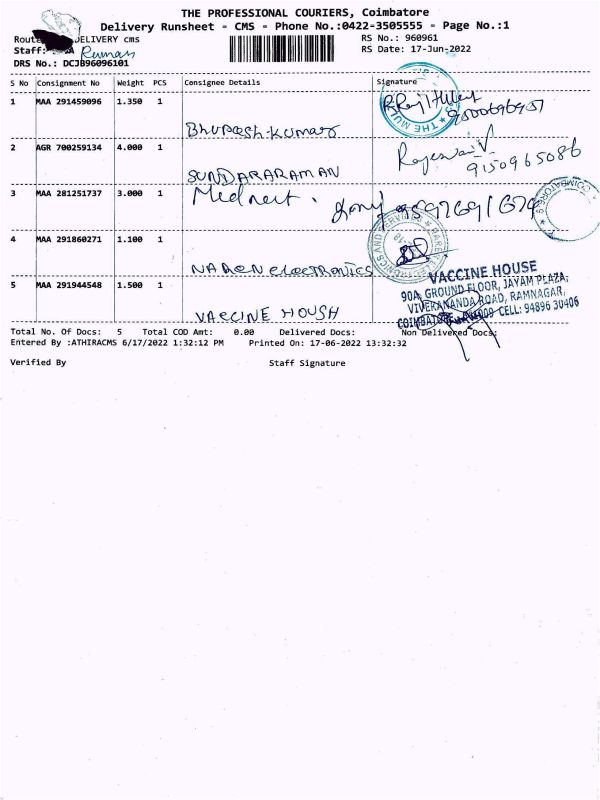 THE PROFESSIONAL COURIERS, Coimbatore
Delivery Runsheet - CMS - Phone No.:0422-3505555 - Page No.:1
Route DELIVERY cms RS No.: 960961
Staff: RS Date: 17-Jun-2022
DRS No.: DCJB96096101
S No Consignment No Weight PCS Consignee Details Signature
1 MAA 291459096 1.350 1
Bhupesh kumar
2 AGR 700259134 4.000 1
9150965086
SUNDARARAMAN
3 MAA 281251737 3.000 1 Mednest.
4 MAA 291860271 1.100 1
NAREN electronics
5 MAA 291944548 1.500 1
VACCINE HOUSH
VACCINE HOUSE
90A, GROUND FLOOR, JAYAM PLAZA,
VIVEKANANDA ROAD, RAMNAGAR,
CELL: 94896 30406
Total No. Of Docs: 5 Total COD Amt: 0.00 Delivered Docs: Non Delivered Docs:
Entered By :ATHIRACMS 6/17/2022 1:32:12 PM Printed On: 17-06-2022 13:32:32
Verified By Staff Signature